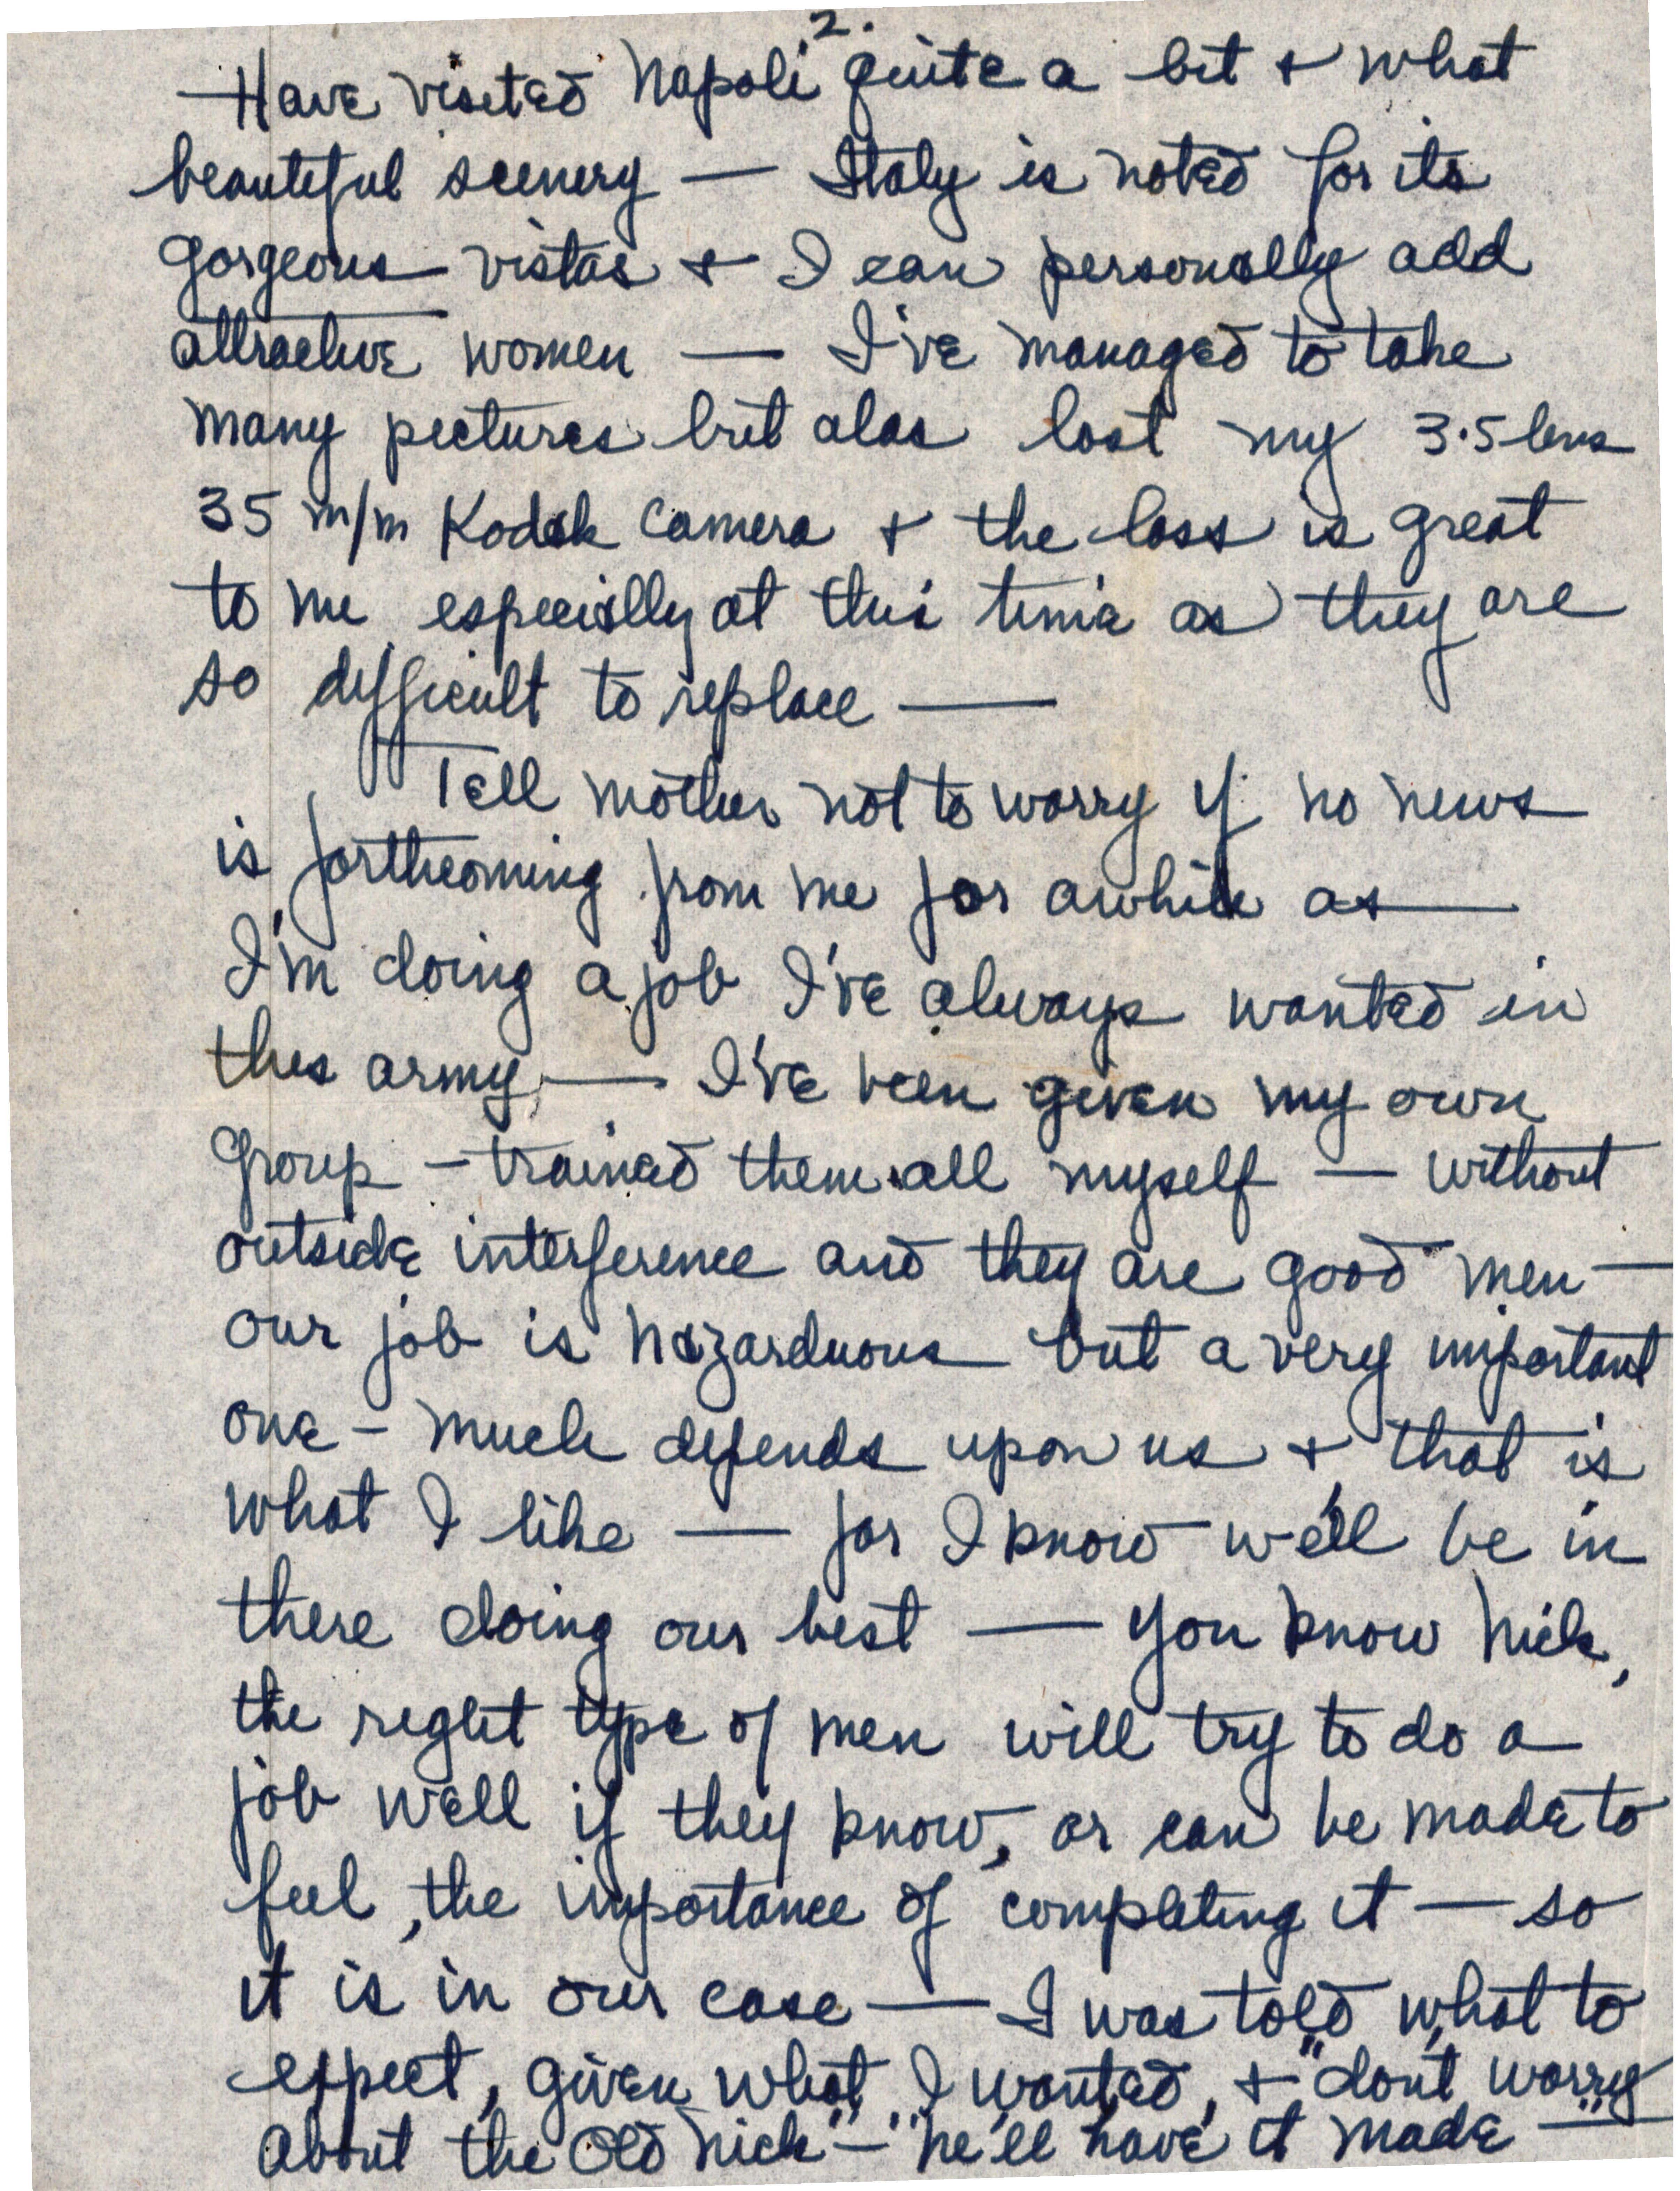 2.
Have visited Napoli quite a bit + what
beautiful scenery — Italy is noted for its
gorgeous vistas + I can personally add
attractive women — I've managed to take
many pictures but alas lost my 3.5 lens
35 m/m Kodak Camera + the loss is great
to me especially at this time as they are
so difficult to replace —
Tell mother not to worry if no news
is forthcoming from me for awhile as —
I'm doing a job I've always wanted in
this army — I've been given my own
group — trained them all myself — without
outside interference and they are good men —
our job is hazarduous but a very important
one - much depends upon us + that is
what I like — for I know we'll be in
there doing our best — you know Nick,
the right type of men will try to do a
job well if they know, or can be made to
feel, the importance of completing it — so
it is in our case — I was told what to
expect, given what I wanted, + "dont worry
about the Old Nick" — "he'll have it made" —